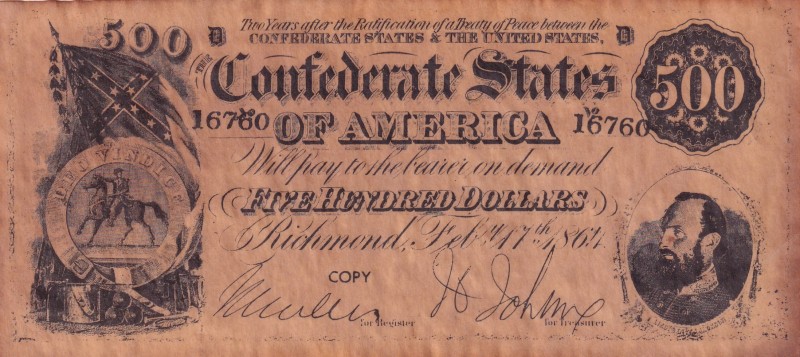 Two Years after the Ratification of a Treaty of Peace between the
CONFEDERATE STATES & THE UNITED STATES,
500 D D 500
THE
Confederate States
16760 OF AMERICA 16760
Will pay to the bearer on demand
FIVE HUNDRED DOLLARS
Richmond, Feby. 17th, 1864
COPY
for Register for Treasurer